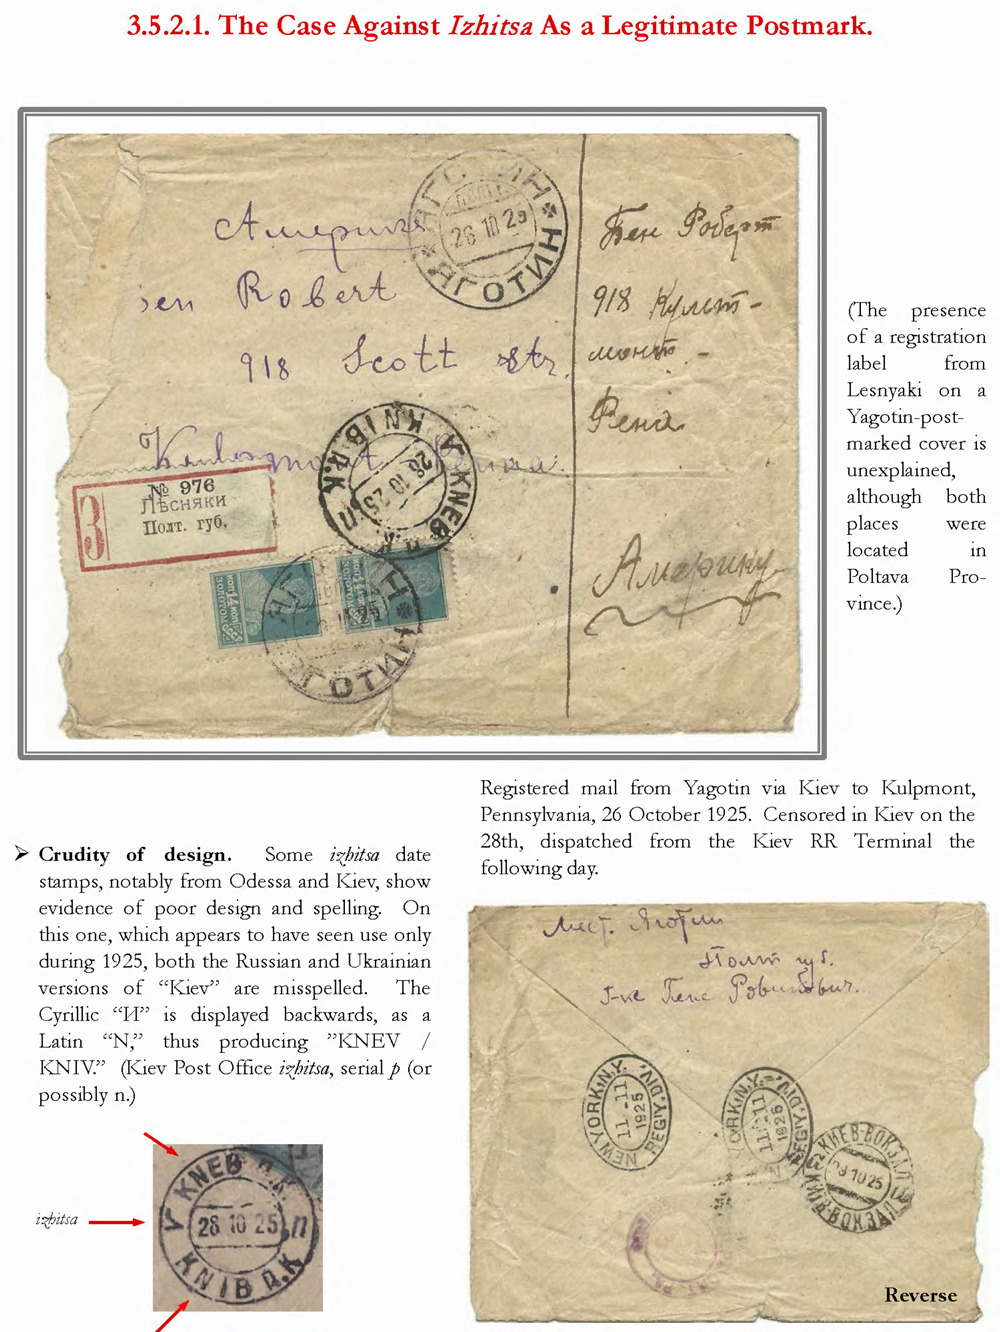 3.5.2.1. The Case Against Izhitsa As a Legitimate Postmark.
ЯГОТИН
26 10 25
ЯГОТИН
Америке
en Robert
918 Scott Str.
Kulpmont Penna.
Бен Роберт
918 Кулпт-
монт. -
Пена
Америку
КNIВ П.К
28 10 25 П
V КNЕВ П.К
З
№ 976
ЛѢСНЯКИ
Полт. губ.
ЯГОТИН
(The presence
of a registration
label from
Lesnyaki on a
Yagotin-post-
marked cover is
unexplained,
although both
places were
located in
Poltava Pro-
vince.)
Registered mail from Yagotin via Kiev to Kulpmont,
Pennsylvania, 26 October 1925. Censored in Kiev on the
28th, dispatched from the Kiev RR Terminal the
following day.
➢ Crudity of design. Some izhitsa date
stamps, notably from Odessa and Kiev, show
evidence of poor design and spelling. On
this one, which appears to have seen use only
during 1925, both the Russian and Ukrainian
versions of “Kiev” are misspelled. The
Cyrillic “И” is displayed backwards, as a
Latin “N,” thus producing ”KNEV /
KNIV.” (Kiev Post Office izhitsa, serial p (or
possibly n.)
КNЕВ П.К.
V 28 10 25 П
КNІВ П.К
izhitsa
Мест. Яготин
Полт губ.
NEW YORK, N.Y.
11-11
1925
REG'Y. DIV.
YORK, N.Y.
11-11
1925
REG'Y. DIV.
КИЕВ-ВОКЗАЛ
29 10 25
КИЇВ-ВОКЗАЛ
Reverse